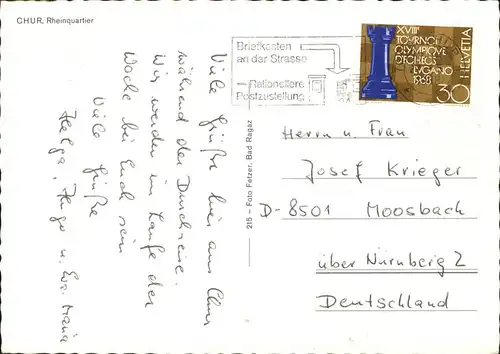 CHUR, Rheinquartier
Viele Grüße hier aus Chur
während der Durchreise.
Wir werden im Laufe der
Woche bei Euch sein
Viele Grüße
Helga, Hugo u. Eva-Maria
215 – Foto Fetzer, Bad Ragaz
Briefkasten
an der Strasse
– Rationellere
Postzustellung
XVIII
TOURNOI
OLYMPIQUE
D'ECHECS
LUGANO
1968
HELVETIA
30
Herrn u. Frau
Josef Krieger
D-8501 Moosbach
über Nürnberg 2
Deutschland